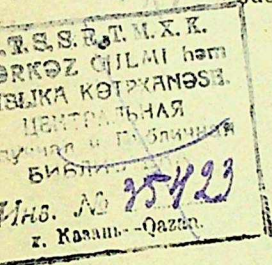 T. S. S. E. T. M. X. K.
ƏRKƏZ ƢILMI həm
BLIKA KƏTPXANƏSE.
ЦЕНТРАЛЬНАЯ
Научная и Публичная
БИБЛИО
Инв. № 35423
г. Казань--Qazan.